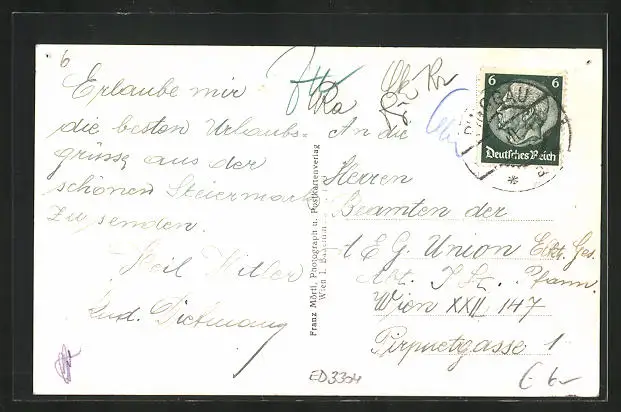 6
Erlaube mir
die besten Urlaubs-
grüsse aus der
schönen Steiermark
zu senden.
Heil Hitler
Lud. Dietmann
Ra
An die
Herren
Beamten der
A E G. Union Elkt. Ges.
Abt. Pfann.
Wien XXII 147
Pirquetgasse 1
6 6
Deutsches Reich
Franz Mörtl, Photograph u. Postkartenverlag
Wien I.
ED3304